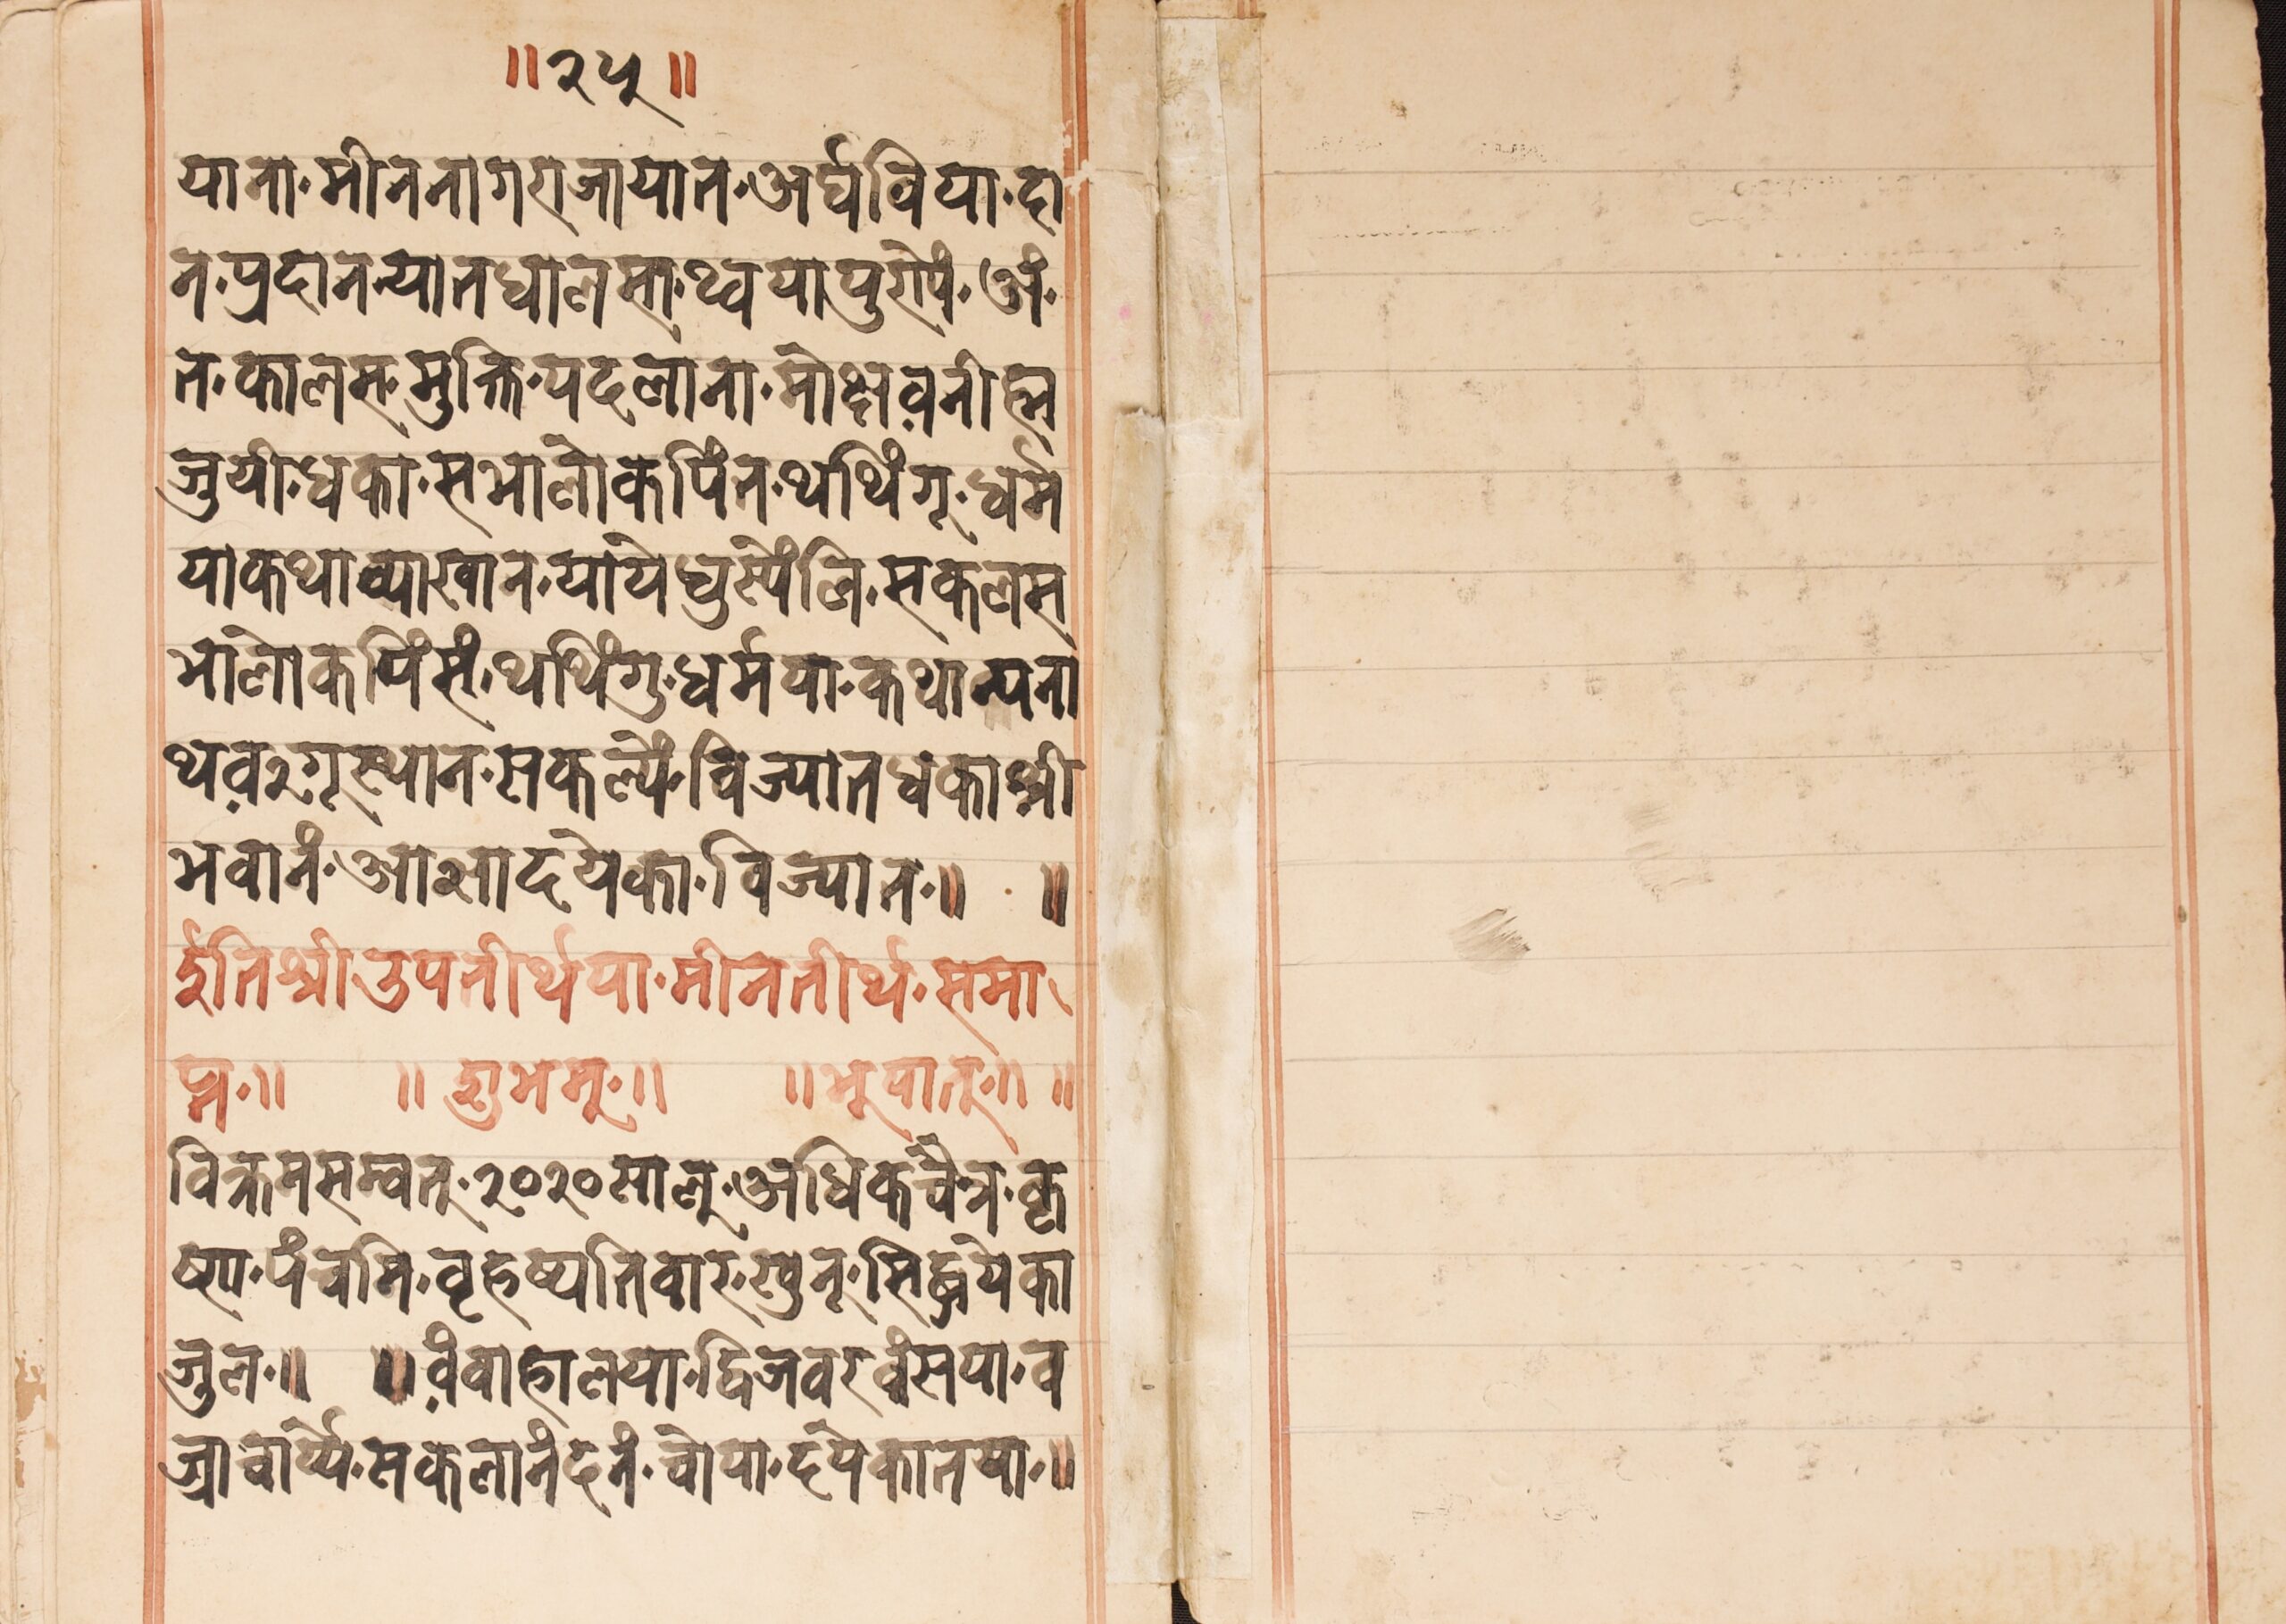 ॥२५॥
याना·मीननागराजायात·अर्घविया·दा
न·प्रदानन्यातधालसा·थ्वयापुरोपं·अं·
त·कालस·मुक्ति·पदलाना·मोक्षव़नीह्म
जुयी·धका·सभालोकपिंत·थथिंगू·धर्म
याकथाव्याखान·यायेधुस्येंलि·सकलस
भालोकपिंसं·थथिंगु·धर्मया·कथान्यना
थव़२गूस्थान·सकल्यें·विज्यातधंका·श्री
भवानं·आज्ञादयेका·विज्यात·॥ ॥
ईतिश्रीउपतीर्थया·मीनतीर्थ·समा
प्त·॥ ॥ शुभम्·॥ ॥भूयात्·॥ ॥
विक्रमसम्वत्·२०२०सालृ·अधिकचैत्र·कृ
ष्ण·पंचमि·वृहष्यतिवार·खुनू·सिद्धयेका
जुल·॥ ॥व़ंवाहालया·द्विजवरवंसया·व
ज्राचार्य्य·सकलानंदनं·चोया·दयेकातया·॥